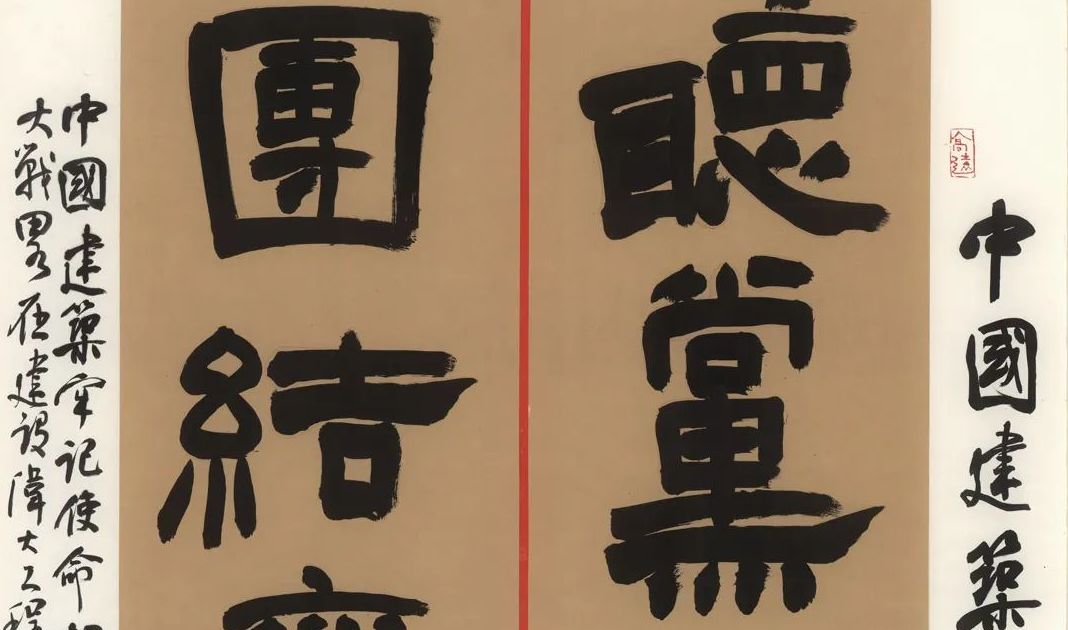 中國建築
聽黨
團結齊
中國建築牢記使命
大戰略在建設偉大工程